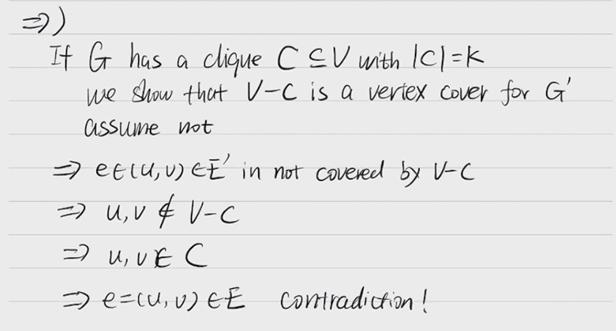 ⇒)
If G has a clique C ⊆ V with |C|=K
we show that V-C is a vertex cover for G'
assume not
⇒ e∈(u,v) ∈ E' in not covered by V-C
⇒ u,v ∉ V-C
⇒ u,v ∈ C
⇒ e=(u,v) ∈ E contradiction!